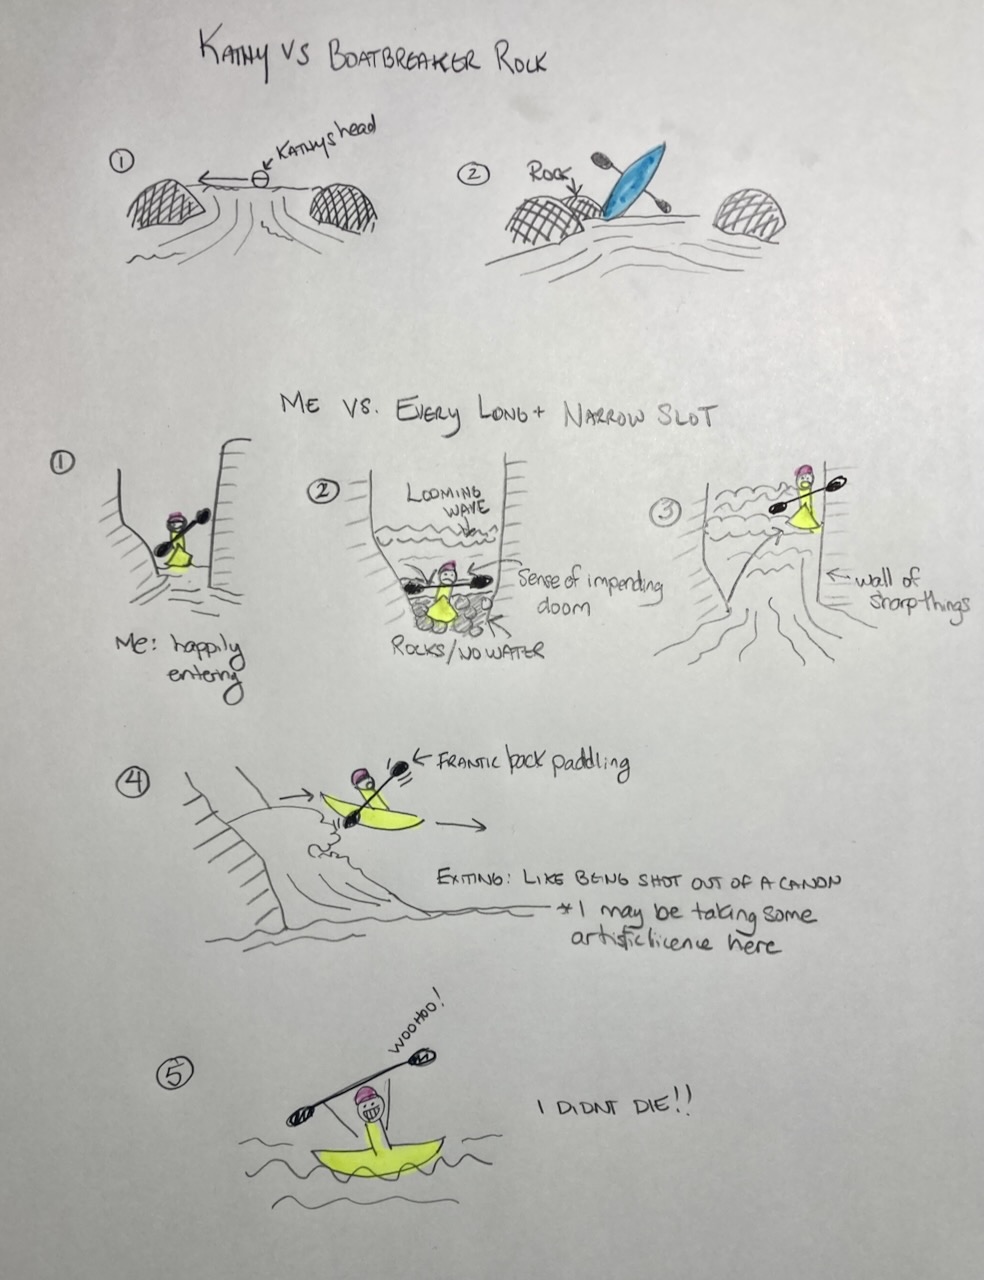 KATHY VS BOATBREAKER ROCK
①
KATHYS head
②
ROCK
ME VS. EVERY LONG + NARROW SLOT
①
ME: happily
entering
②
LOOMING
WAVE
Sense of impending
doom
ROCKS/NO WATER
③
wall of
sharp things
④
FRANTIC back paddling
EXITING: LIKE BEING SHOT OUT OF A CANON
*I may be taking some
artistic licence here
⑤
WOOHOO!
I DIDNT DIE!!